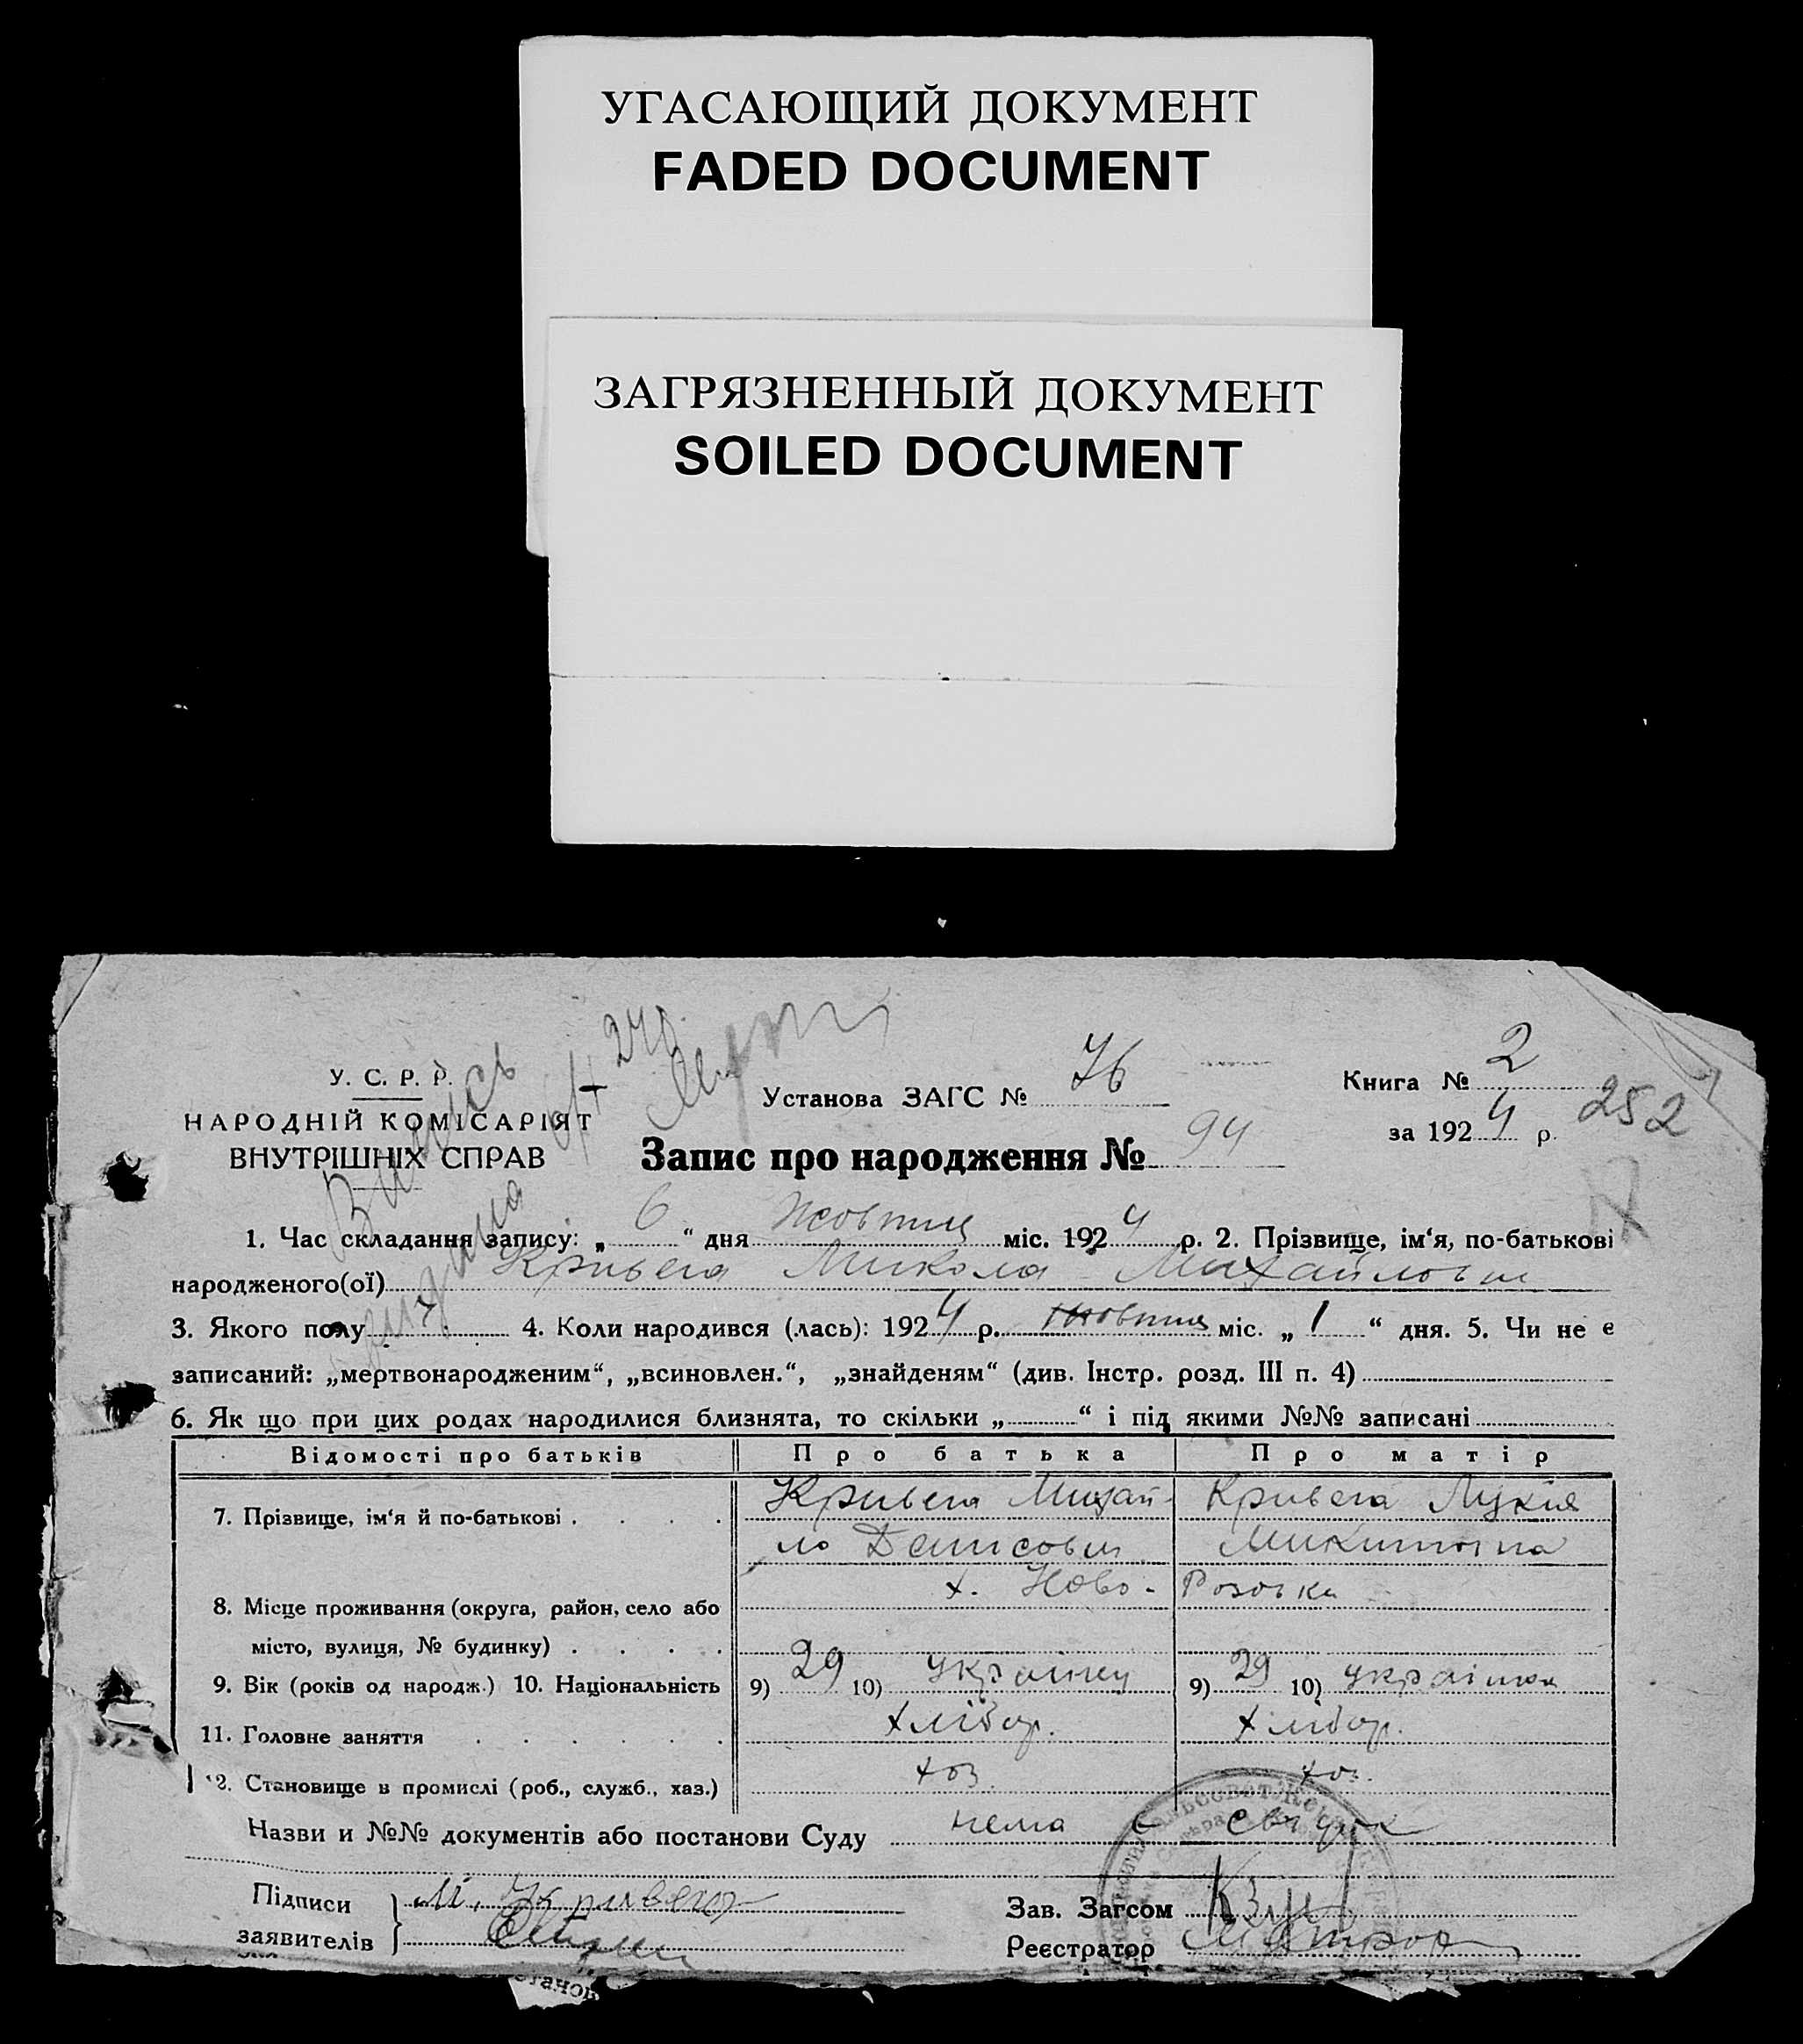 УГАСАЮЩИЙ ДОКУМЕНТ
FADED DOCUMENT
ЗАГРЯЗНЕННЫЙ ДОКУМЕНТ
SOILED DOCUMENT
У. С. Р. Р.
НАРОДНІЙ КОМІСАРІЯТ
ВНУТРІШНІХ СПРАВ
Установа ЗАГС № 76
Книга № 2
за 1924 р.
252
Запис про народження № 94
1. Час складання запису: „ 6 “ дня Жовтня міс. 1924 р. 2. Прізвище, ім‘я, по-батькові
народженого(ої) Кривега Микола Михайлович
3. Якого полу 4. Коли народився (лась): 1924 р. жовтня міс. „ 1 “ дня. 5. Чи не є
записаний: „мертвонародженим“, „всиновлен.“, „знайденям“ (див. Інстр. розд. III п. 4)
6. Як що при цих родах народилися близнята, то скільки „ “ і під якими №№ записані
Відомості про батьків Про батька Про матір
7. Прізвище, ім‘я й по-батькові . . . . Кривега Михай- Кривега Лукія
ло Денисович Микитовна
8. Місце проживання (округа, район, село або х. Ново- Розовка
місто, вулиця, № будинку) . . . .
9. Вік (років од народж.) 10. Національність 9) 29 10) українец 9) 29 10) українка
11. Головне заняття . . . . . . хлібор. хлібор.
12. Становище в промислі (роб., служб., хаз.) хоз. хоз.
Назви и №№ документів або постанови Суду нема
Підписи М. Кривега
заявителів
Зав. Загсом
Реєстратор